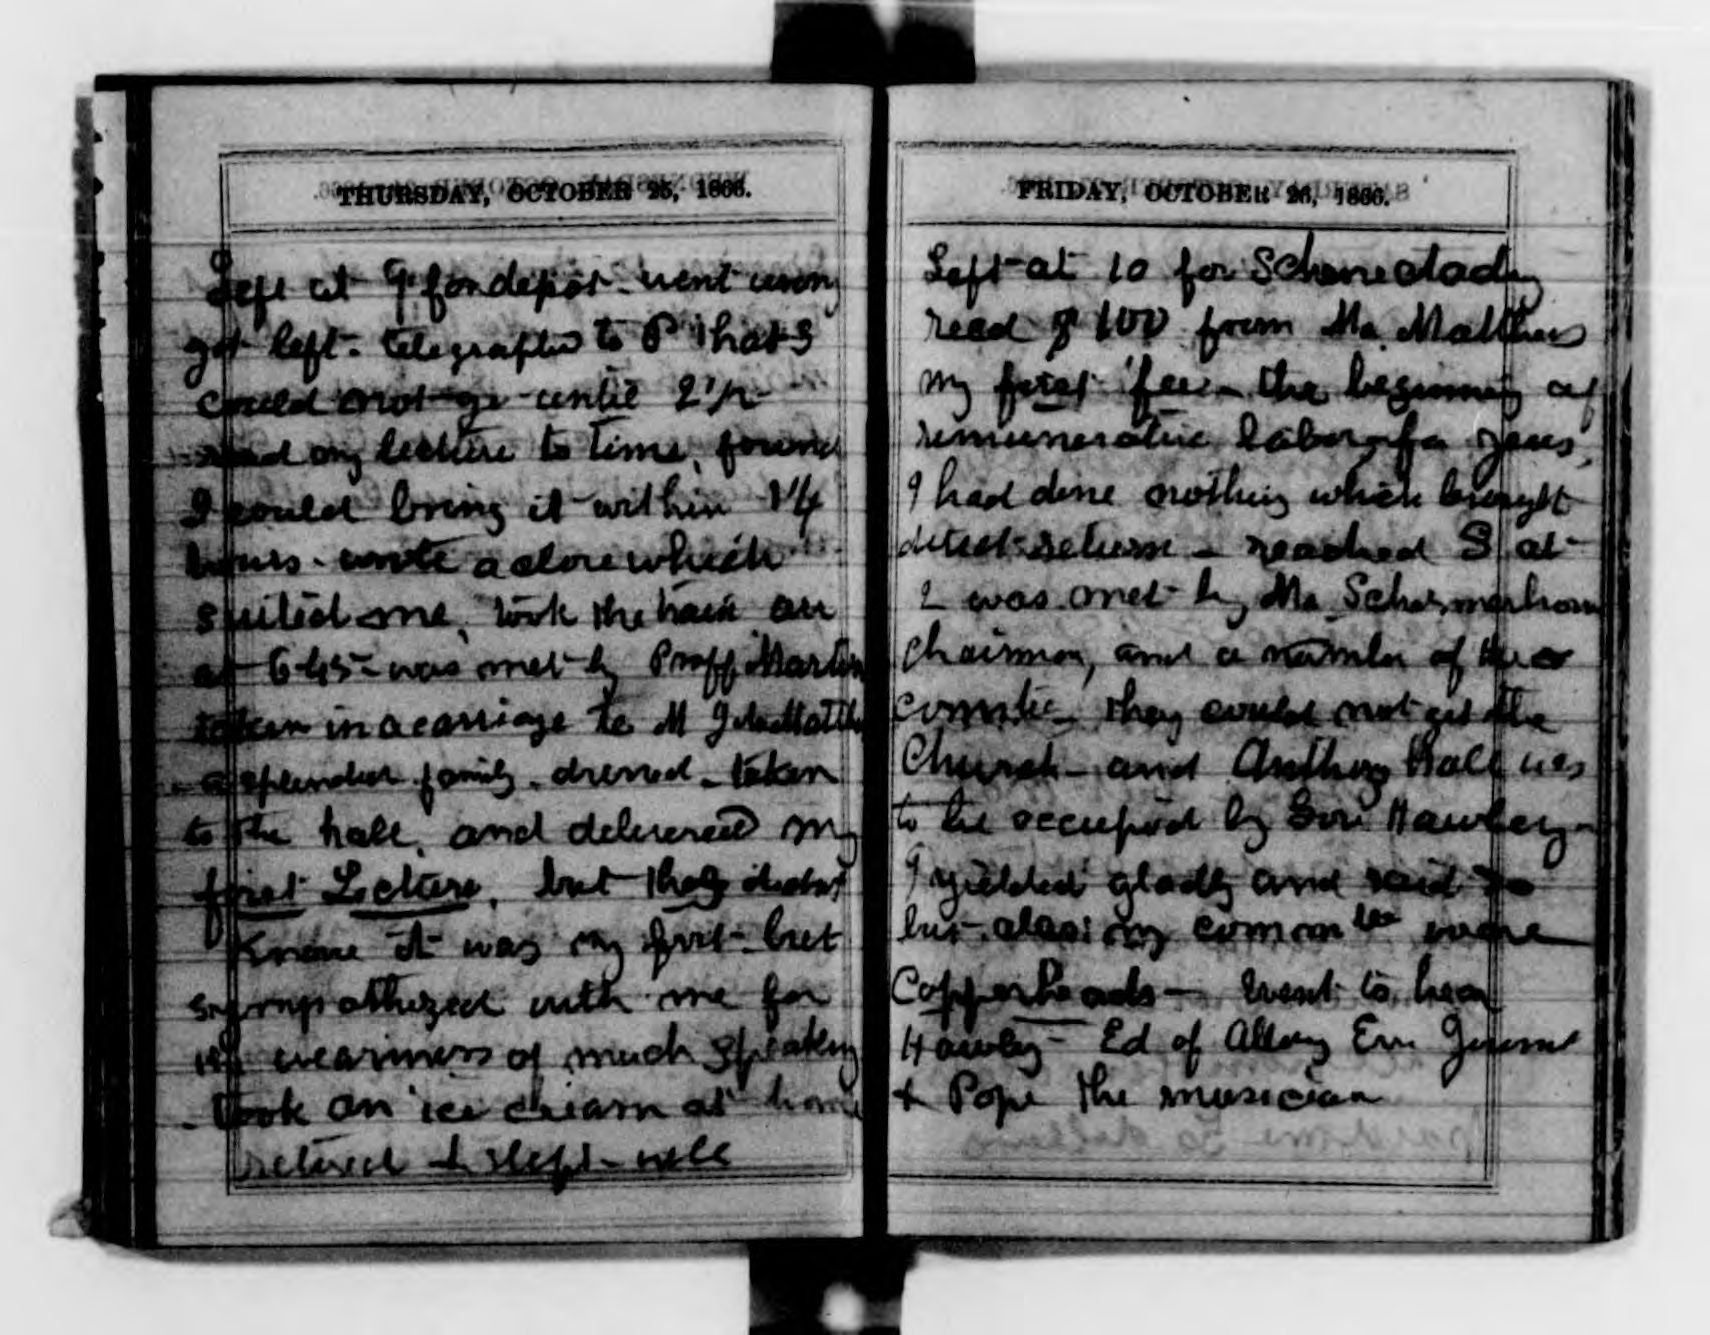 THURSDAY, OCTOBER 25, 1866.
Left at 9 for depot - went wrong
got left - telegraphed to P that I
could not go until 2 1/2
read my lecture to time, found
I could bring it within 1 1/4
hours - wrote a close which
suited me, took the train arr
at 6-45 - was met by Proff Martin
taken in a carriage to M
a splendid family - dressed - taken
to the hall, and delivered my
first Lecture, but they didnt
know it was my first - but
sympathized with me for
weariness of much speaking
took an ice cream at home
retired & slept - well
FRIDAY, OCTOBER 26, 1866.
Left at 10 for Schenectady
recd $100 from Mr. Matthews
my first fee - the beginning of
remunerative labor, for years,
I had done nothing which brought
direct return - reached S at
2 was met by Mr Schermerhorn
Chairman, and a number of the
comtee - they could not get the
Church - and Anthony Hall was
to be occupied by Gov Hawley -
I yielded gladly and said so
but alas! my commtee were
Copperheads - went to hear
Hawley - Ed of Albany Eve Journal
& Pope the musician